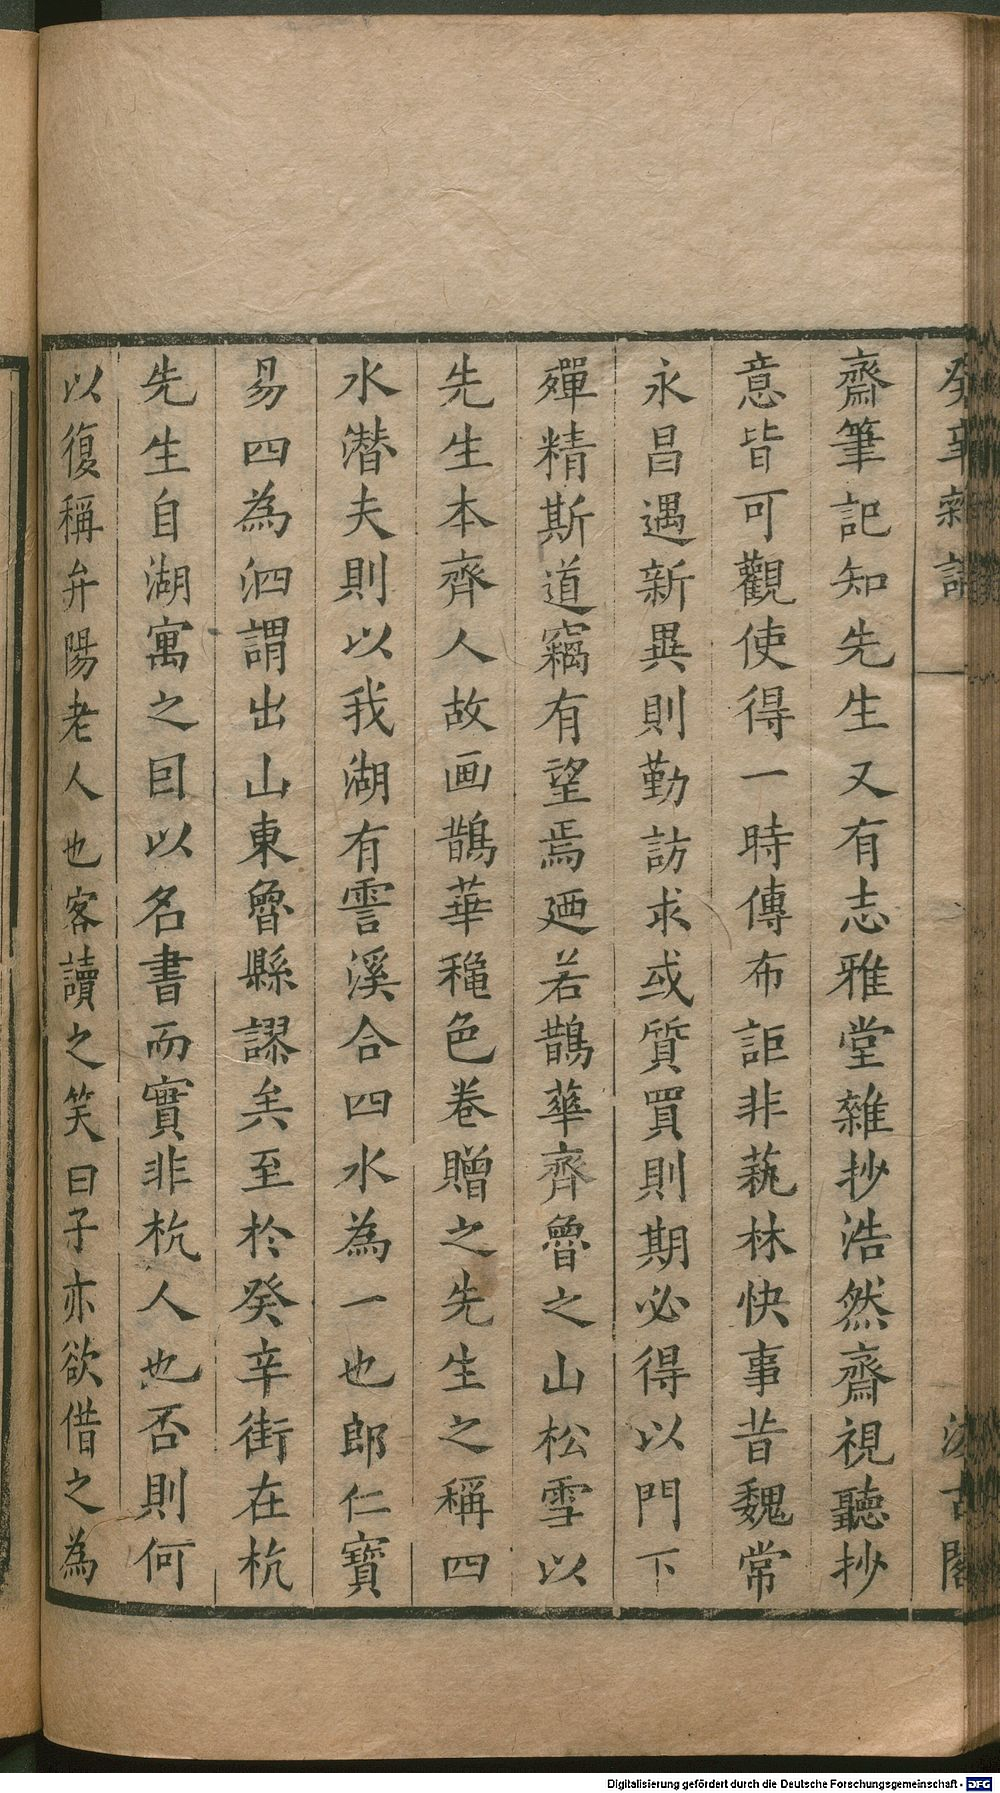 癸辛雜識 汲古閣
齋筆記知先生又有志雅堂雜抄浩然齋視聽抄
意皆可觀使得一時傳布詎非蓺林快事昔魏常
永昌遇新異則勤訪求或質買則期必得以門下
殫精斯道竊有望焉廼若鵲華齊魯之山松雪以
先生本齊人故画鵲華龝色卷贈之先生之稱四
水潛夫則以我湖有霅溪合四水為一也郎仁寶
易四為泗謂出山東魯縣謬矣至於癸辛街在杭
先生自湖寓之因以名書而實非杭人也否則何
以復稱弁陽老人也客讀之笑曰子亦欲借之為
Digitalisierung gefördert durch die Deutsche Forschungsgemeinschaft - DFG